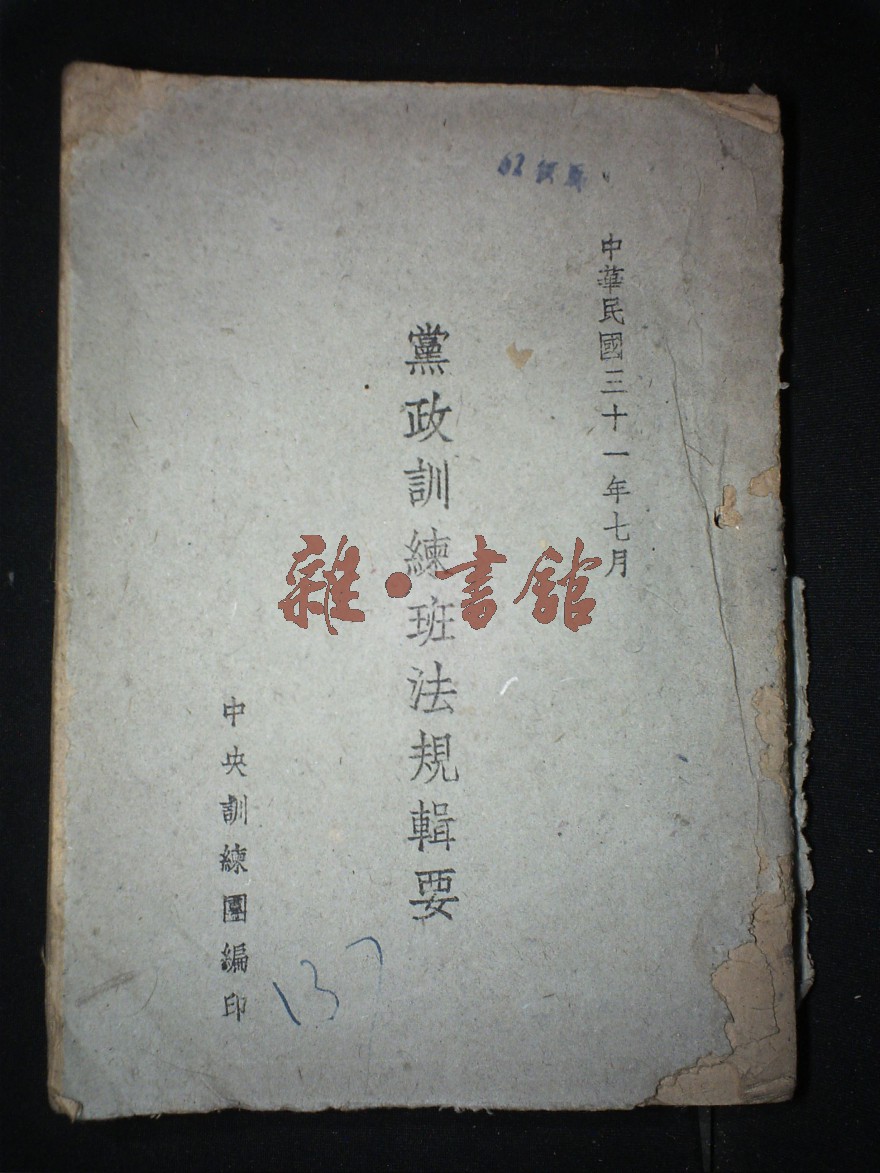 中華民國三十一年七月
黨政訓練班法規輯要
中央訓練團編印
137
雜·書館